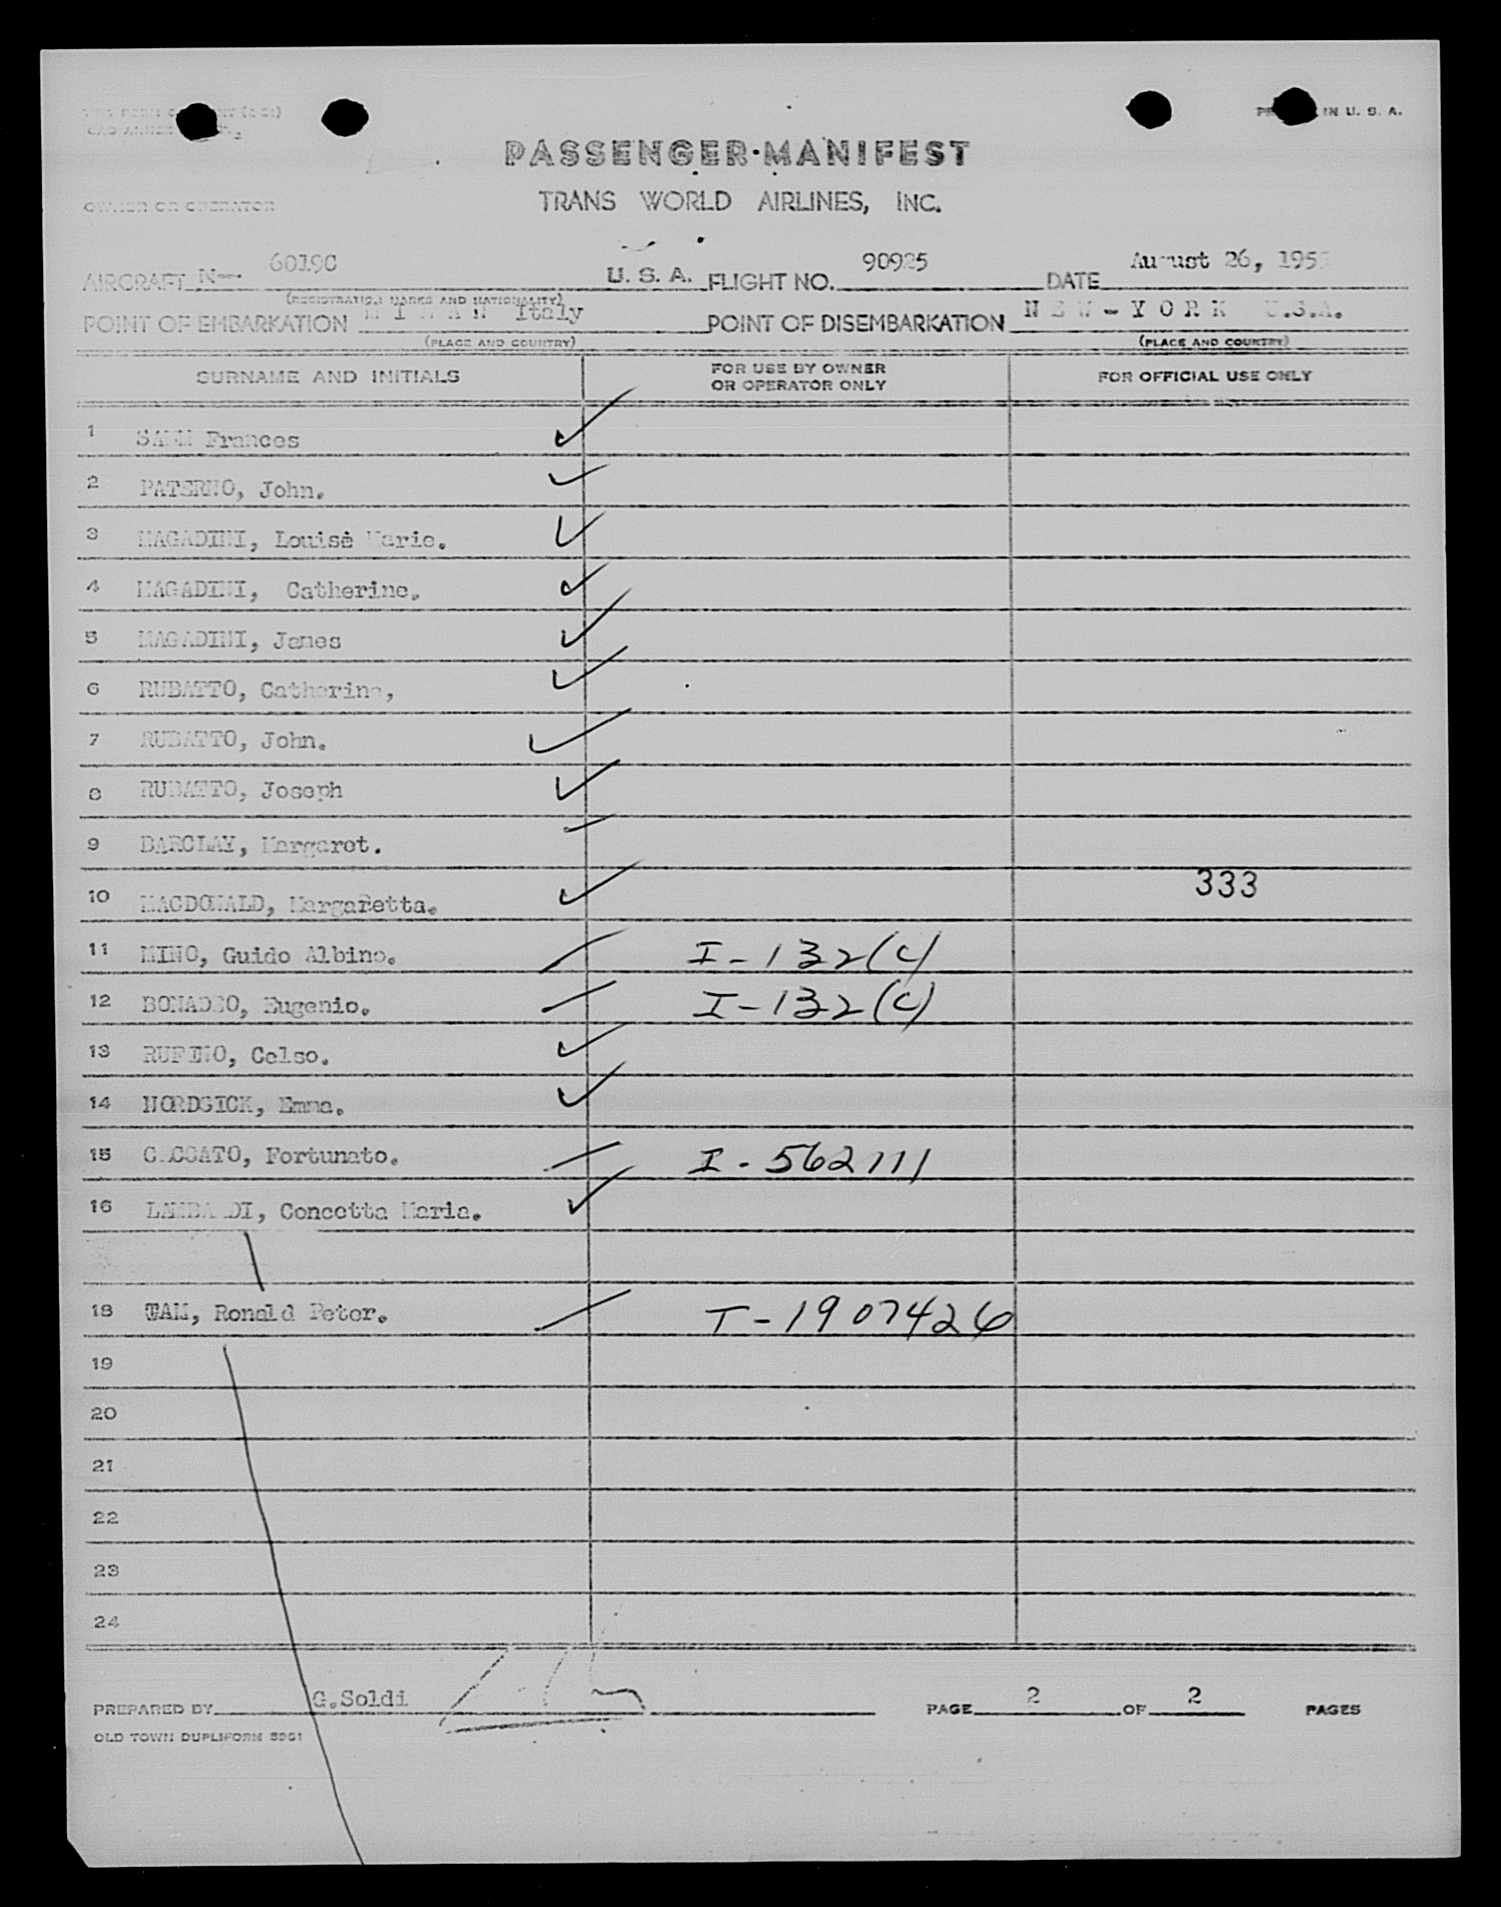 PRINTED IN U. S. A.
PASSENGER MANIFEST
TRANS WORLD AIRLINES, INC.
OWNER OR OPERATOR
AIRCRAFT N— 6019C U. S. A. FLIGHT NO. 90925 DATE August 26, 195
(REGISTRATION MARKS AND NATIONALITY)
POINT OF EMBARKATION M I L A N Italy POINT OF DISEMBARKATION N E W - Y O R K U.S.A.
(PLACE AND COUNTRY) (PLACE AND COUNTRY)
SURNAME AND INITIALS FOR USE BY OWNER OR OPERATOR ONLY FOR OFFICIAL USE ONLY
1 Frances
2 PATERNO, John.
3 MAGADINI, Louise Marie.
4 MAGADINI, Catherine.
5 MAGADINI, James
6 RUBATTO, Catherine,
7 RUBATTO, John.
8 RUBATTO, Joseph
9 BARCLAY, Margaret.
10 MACDONALD, Margaretta. 333
11 MINO, Guido Albino. I-132(c)
12 BONADEO, Eugenio. I-132(c)
13 RUFINO, Celso.
14 NORDSICK, Emma.
15 Fortunato. I-562111
16 LAMBARDI, Concetta Maria.
18 TAM, Ronald Peter. T-1907426
19
20
21
22
23
24
PREPARED BY G.Soldi PAGE 2 OF 2 PAGES
OLD TOWN DUPLIFORM